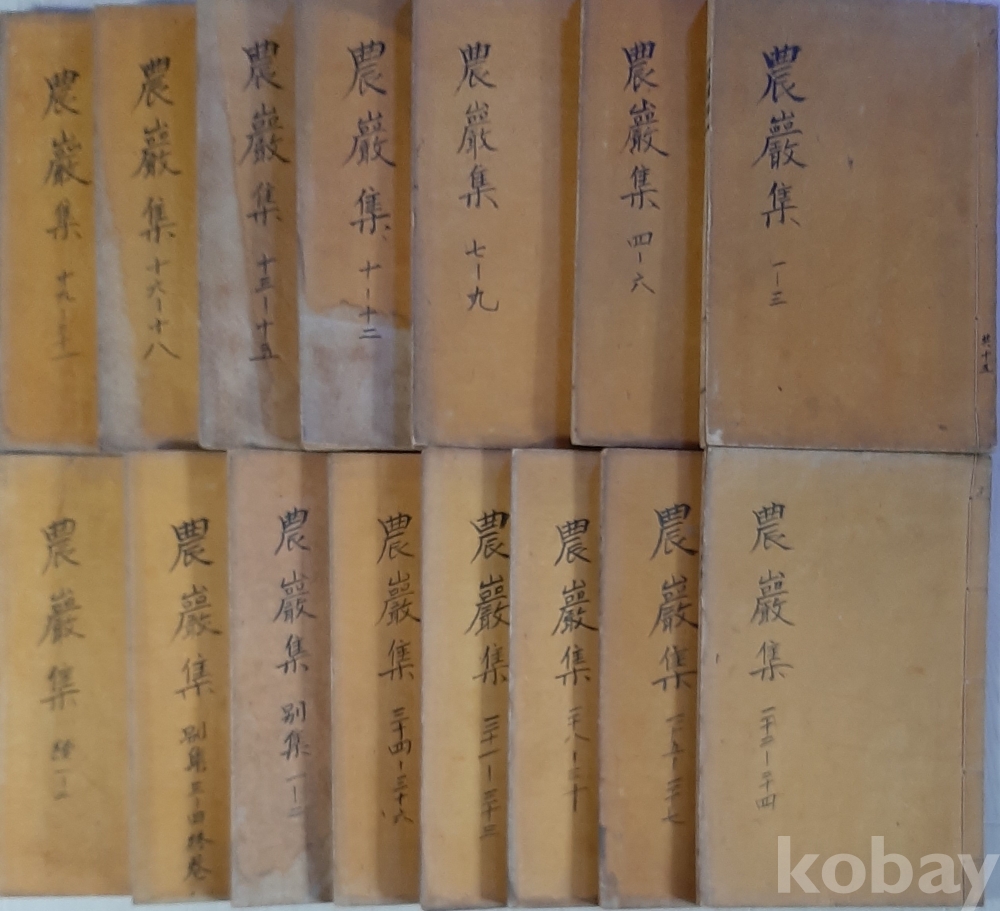 農巖集 一-三
共十五
農巖集 四-六
農巖集 七-九
農巖集 十-十二
農巖集 十三-十五
農巖集 十六-十八
農巖集 十九-二十一
農巖集 二十二-二十四
農巖集 二十五-二十七
農巖集 二十八-三十
農巖集 三十一-三十三
農巖集 三十四-三十六
農巖集 別集 一-二
農巖集 別集 三-四終卷
農巖集
kobay